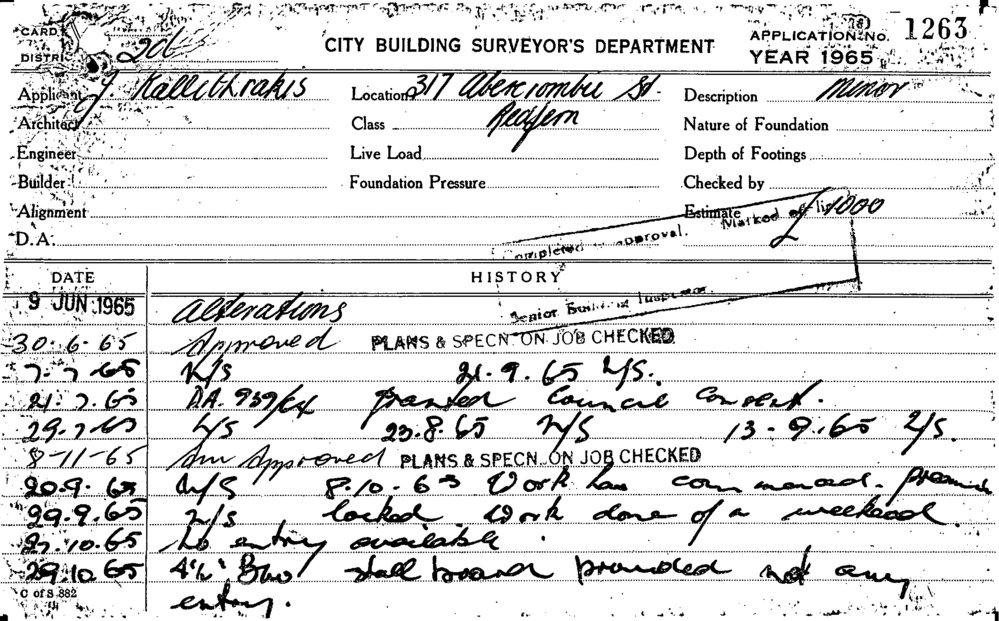 CARD
DISTRICT 2d
CITY BUILDING SURVEYOR'S DEPARTMENT
APPLICATION No. 1263
YEAR 1965
Applicant J Kallithrakis Location 317 Abercrombie St. Description Minor
Architect Class Redfern Nature of Foundation
Engineer Live Load Depth of Footings
Builder Foundation Pressure Checked by
Alignment Estimate £1000
D.A.
Completed approval. Marked off list
Senior Building Inspector
DATE HISTORY
9 JUN 1965 Alterations
30-6-65 Approved PLANS & SPECN. ON JOB CHECKED
7-7-65 N/S 21.9.65 N/S.
21.7.65 D.A. 939/64 granted Council Consent.
29-7-65 N/S 23.8.65 N/S 13-9.65 N/S.
8-11-65 Am Approved PLANS & SPECN. ON JOB CHECKED
20.9.65 N/S 8.10.65 Work has commenced. premises
29.9.65 N/S locked. Work done of a weekend.
27.10.65 No entry available.
29.10.65 4½" Bwk stall board provided not any
entry.
C of S 882